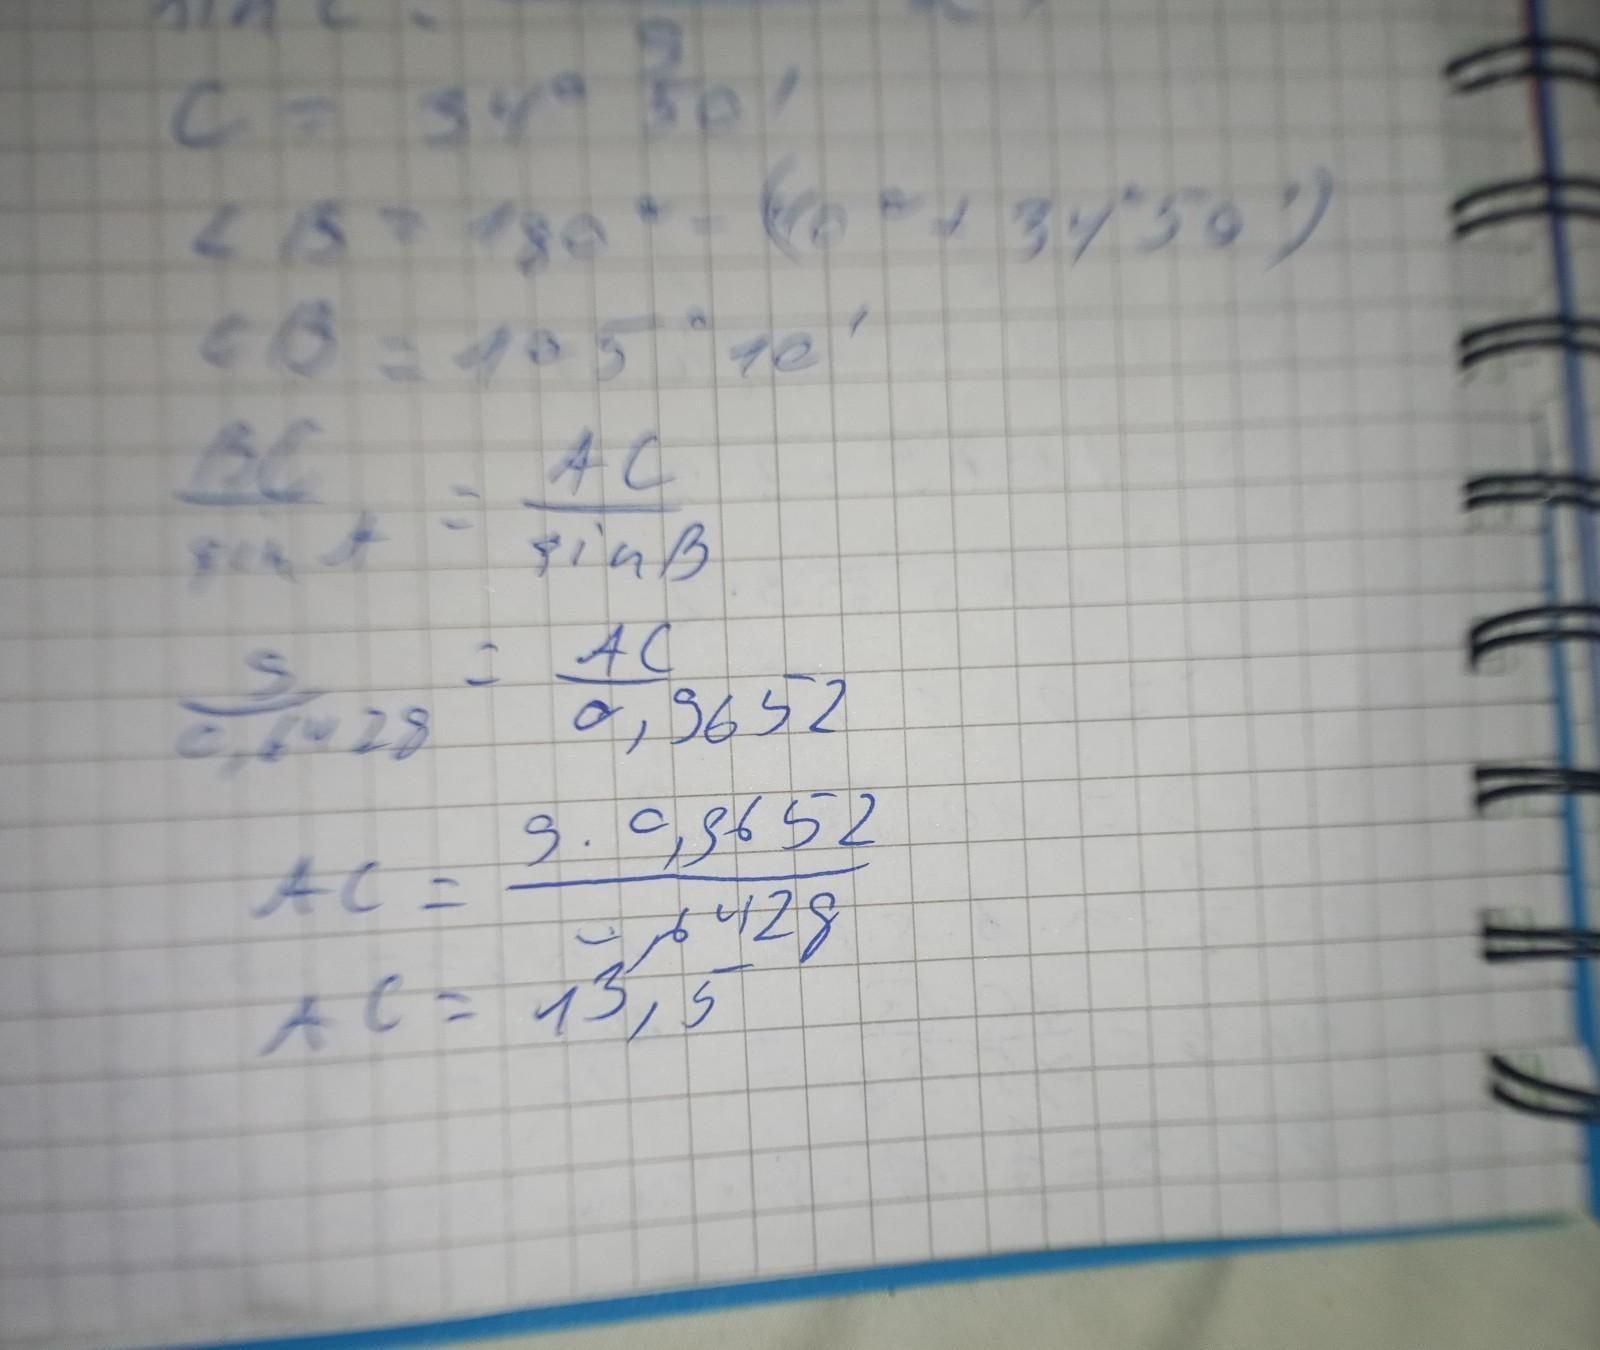 C = 34° 50'
∠B = 180° - (40° + 34°50')
∠B = 105° 10'
BC/sin A = AC/sin B
9/0,6428 = AC/0,9652
AC = 9 · 0,9652/0,6428
AC = 13,5